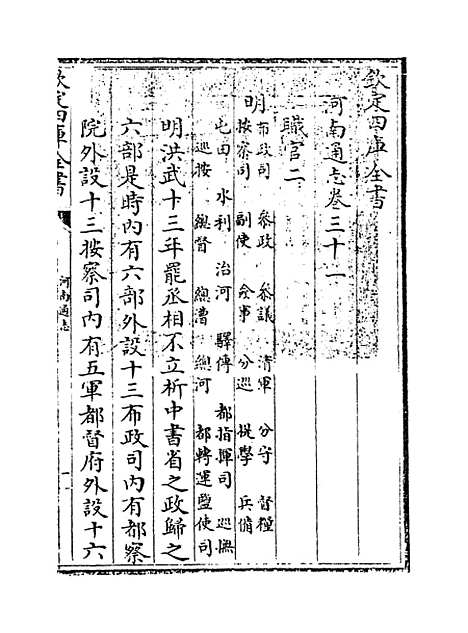 欽定四庫全書
河南通志卷三十一
職官二
明 布政司 參政 參議 清軍 分守 督糧
按察司 副使 僉事 分巡 提學 兵備
屯田 水利 治河 驛傳 都指揮司 巡撫
巡按 總督 總漕 總河 都轉運鹽使司
明洪武十三年罷丞相不立析中書省之政歸之
六部是時內有六部外設十三布政司內有都察
院外設十三按察司內有五軍都督府外設十六
欽定四庫全書
河南通志
一